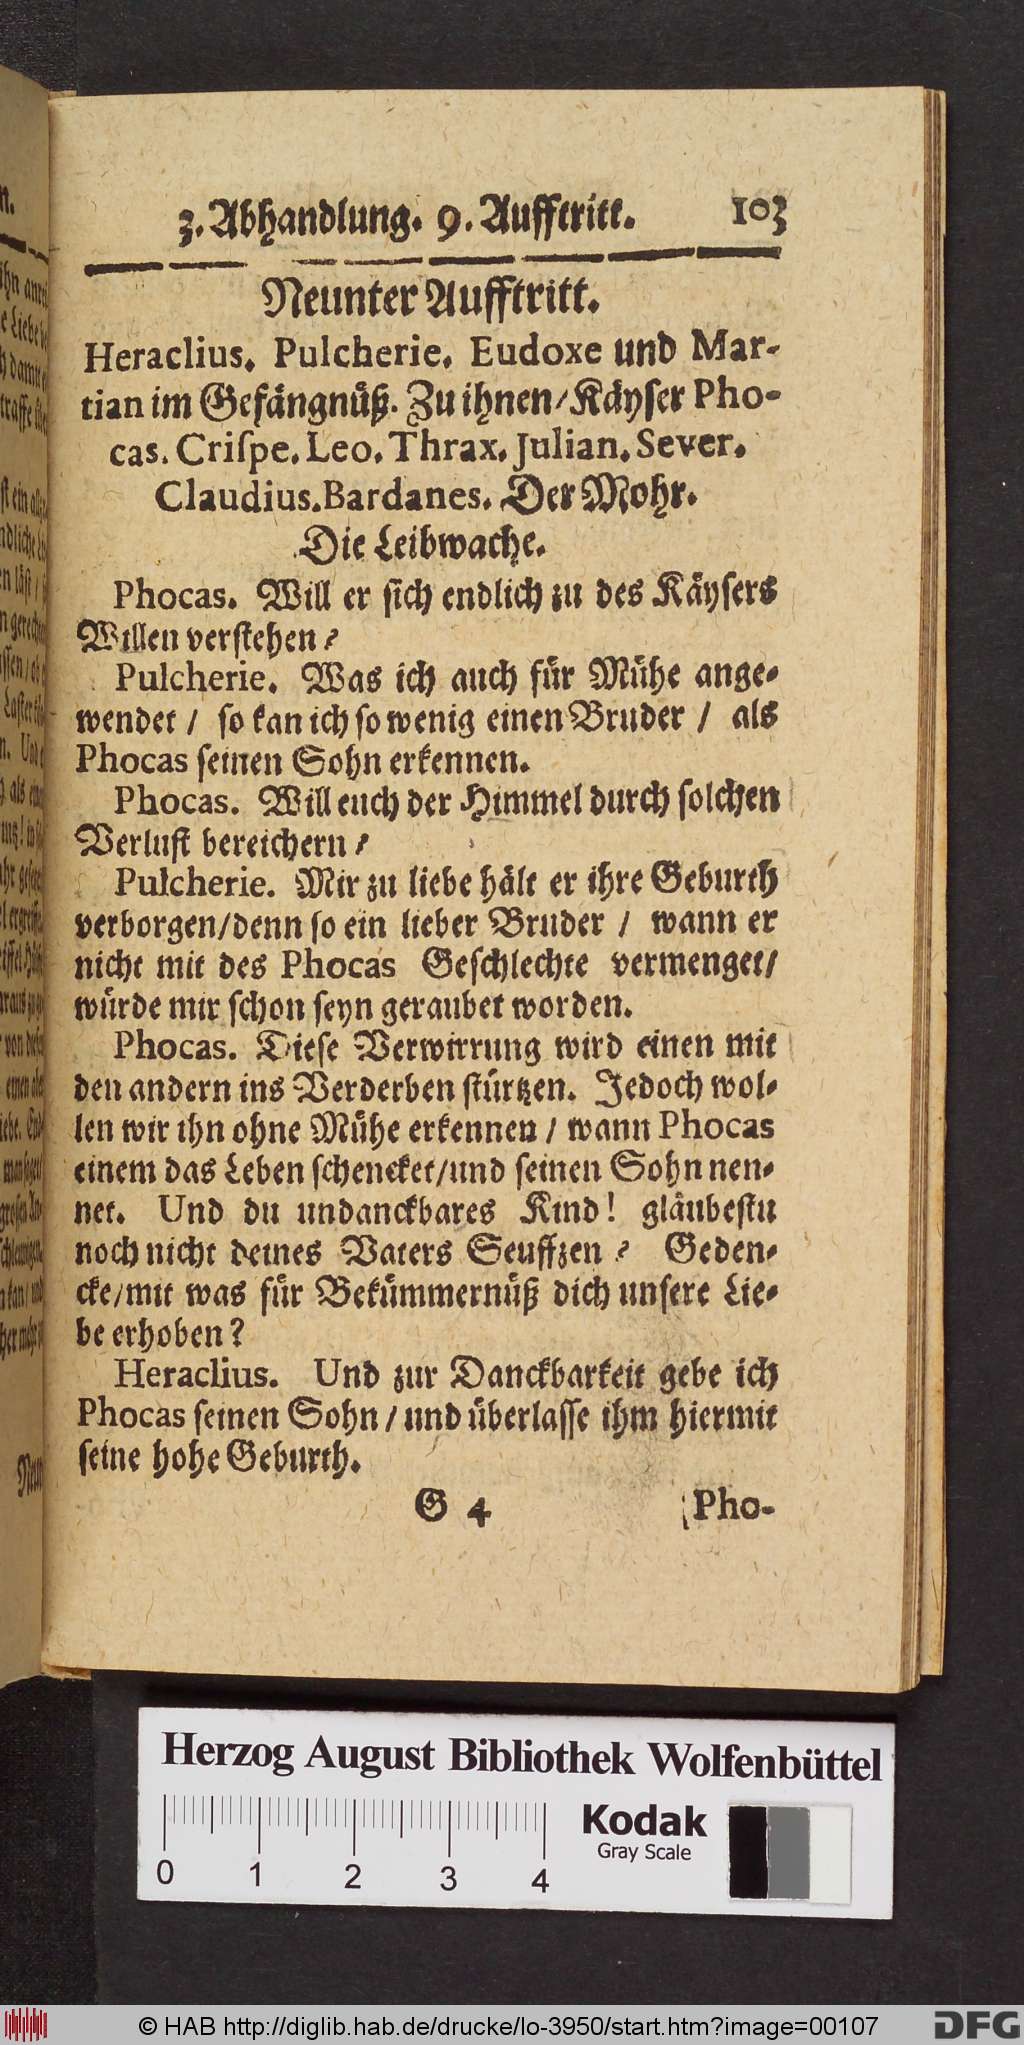 3. Abhandlung. 9. Aufftritt. 103
Neunter Aufftritt.
Heraclius. Pulcherie. Eudoxe und Mar-
tian im Gefängnüß. Zu ihnen/Käyser Pho-
cas. Criſpe. Leo. Thrax. Julian. Sever.
Claudius. Bardanes. Der Mohr.
Die Leibwache.
Phocas. Will er ſich endlich zu des Käyſers
Willen verſtehen?
Pulcherie. Was ich auch für Mühe ange-
wendet / ſo kan ich ſo wenig einen Bruder / als
Phocas ſeinen Sohn erkennen.
Phocas. Will euch der Himmel durch ſolchen
Verluſt bereichern?
Pulcherie. Mir zu liebe hält er ihre Geburth
verborgen/denn ſo ein lieber Bruder / wann er
nicht mit des Phocas Geſchlechte vermenget/
würde mir ſchon ſeyn geraubet worden.
Phocas. Dieſe Verwirrung wird einen mit
den andern ins Verderben ſtürtzen. Jedoch wol-
len wir ihn ohne Mühe erkennen / wann Phocas
einem das Leben ſchencket/und ſeinen Sohn nen-
net. Und du undanckbares Kind! gläubeſtu
noch nicht deines Vaters Seuffzen? Geden-
cke/mit was für Bekümmernüß dich unſere Lie-
be erhoben?
Heraclius. Und zur Danckbarkeit gebe ich
Phocas ſeinen Sohn / und überlaſſe ihm hiermit
ſeine hohe Geburth.
G 4 Pho-
Herzog August Bibliothek Wolfenbüttel
Kodak
Gray Scale
0 1 2 3 4
© HAB http://diglib.hab.de/drucke/lo-3950/start.htm?image=00107
DFG